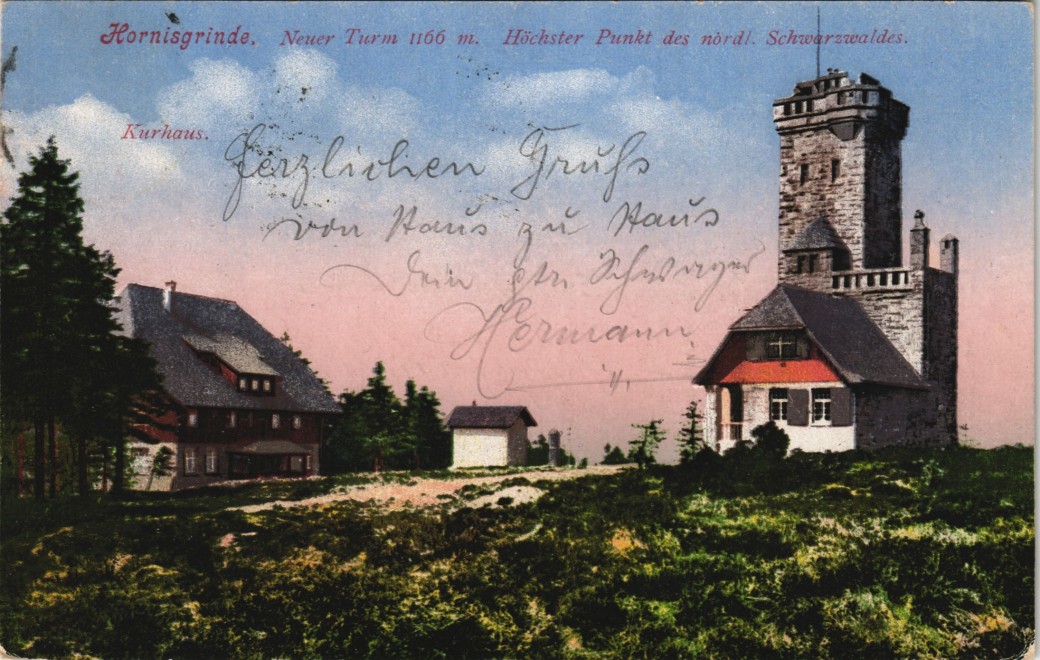 Hornisgrinde. Neuer Turm 1166 m. Höchster Punkt des nördl. Schwarzwaldes.
Kurhaus.
Herzlichen Gruß
von Haus zu Haus
Dein Schwager
Hermann